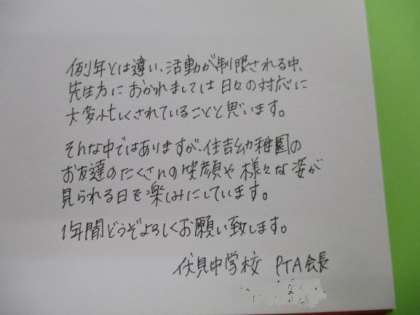 例年とは違い、活動が制限される中、
先生方におかれましては日々の対応に
大変忙しくされていることと思います。
そんな中ではありますが、住吉幼稚園の
お友達のたくさんの笑顔や様々な姿が
見られる日を楽しみにしています。
1年間どうぞよろしくお願い致します。
伏見中学校 PTA会長